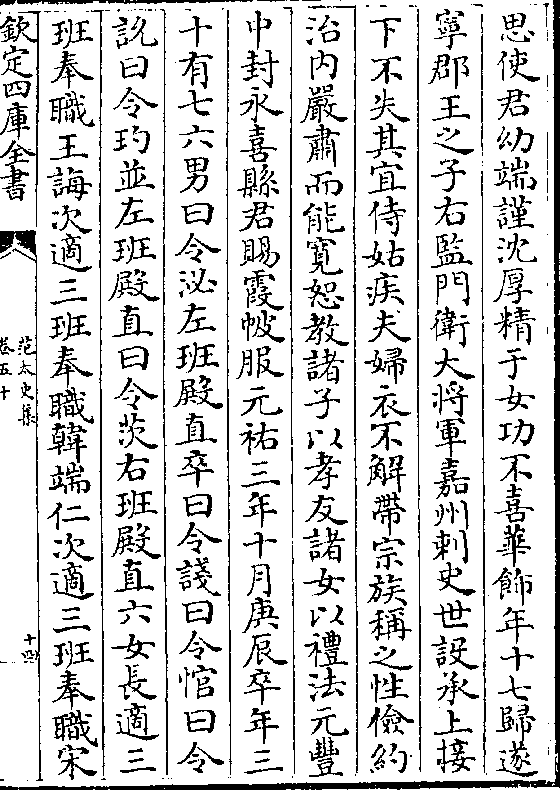 思使君幼端謹沈厚精于女功不喜華飾年十七歸遂
寧郡王之子右監門衛大將軍嘉州刺史世設承上接
下不失其宜侍姑疾夫婦衣不解帶宗族稱之性儉約
治内嚴肅而能寛恕教諸子以孝友諸女以禮法元豐
中封永喜縣君賜霞帔服元祐三年十月庚辰卒年三
十有七六男曰令泌左班殿直卒曰令諓曰令悺曰令
訦曰令玓並左班殿直曰令茨右班殿直六女長適三
班奉職王誨次適三班奉職韓端仁次適三班奉職宋
欽定四庫全書
范太史集
卷五十
十四